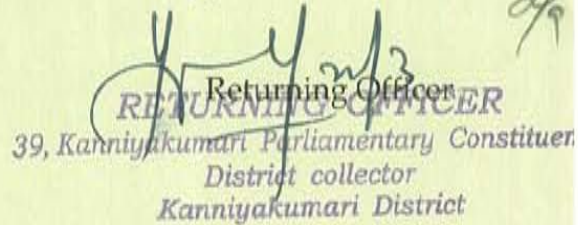 Returning Officer
RETURNING OFFICER
39, Kanniyakumari Parliamentary Constituen
District collector
Kanniyakumari District